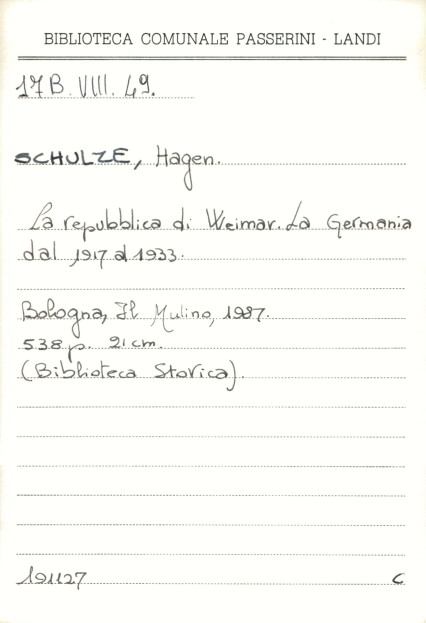 BIBLIOTECA COMUNALE PASSERINI - LANDI
17B. VIII. 49.
SCHULZE, Hagen.
La repubblica di Weimar. La Germania
dal 1917 al 1933.
Bologna, Il Mulino, 1987.
538 p. 21 cm.
(Biblioteca Storica).
191127 C